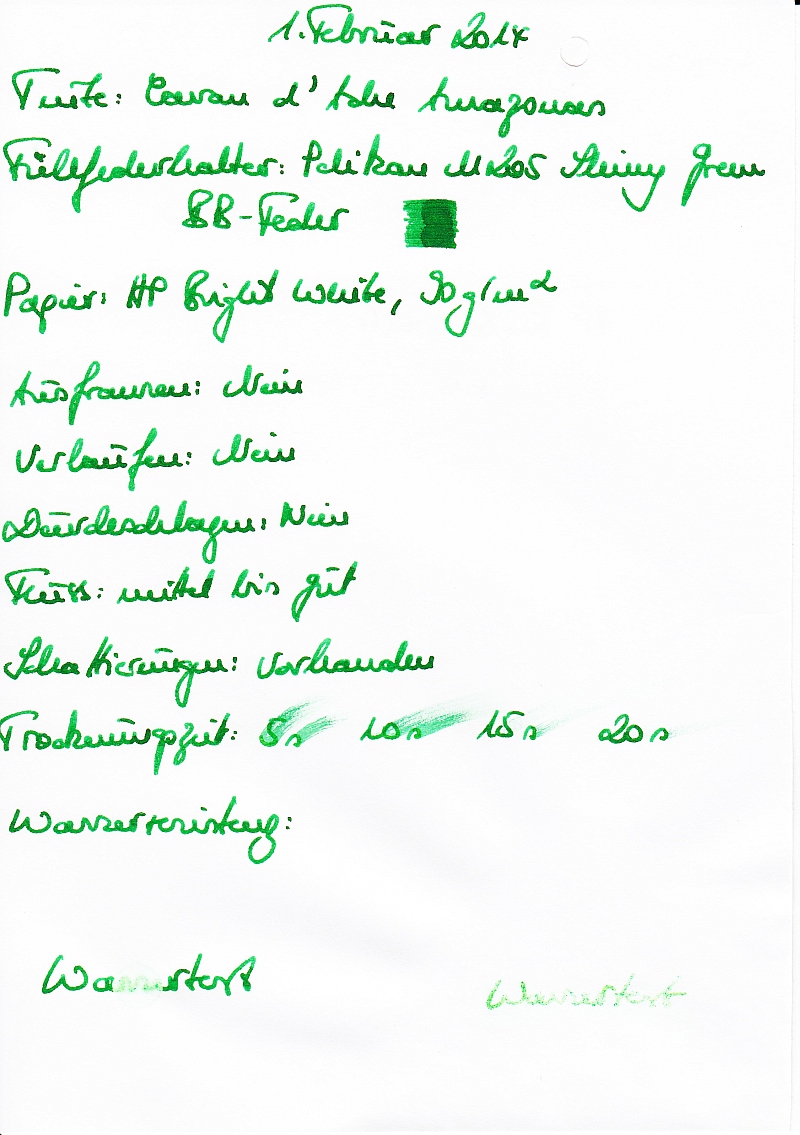 1. Februar 2014
Tinte: Caran d'Ache Amazonas
Füllfederhalter: Pelikan M205 Shiny Green
BB-Feder
Papier: HP Bright White, 90 g/m²
Ausfransen: Nein
Verlaufen: Nein
Durchschlagen: Nein
Fluss: mittel bis gut
Schattierungen: vorhanden
Trocknungszeit: 5s 10s 15s 20s
Wasserresistenz:
Wassertest Wassertest